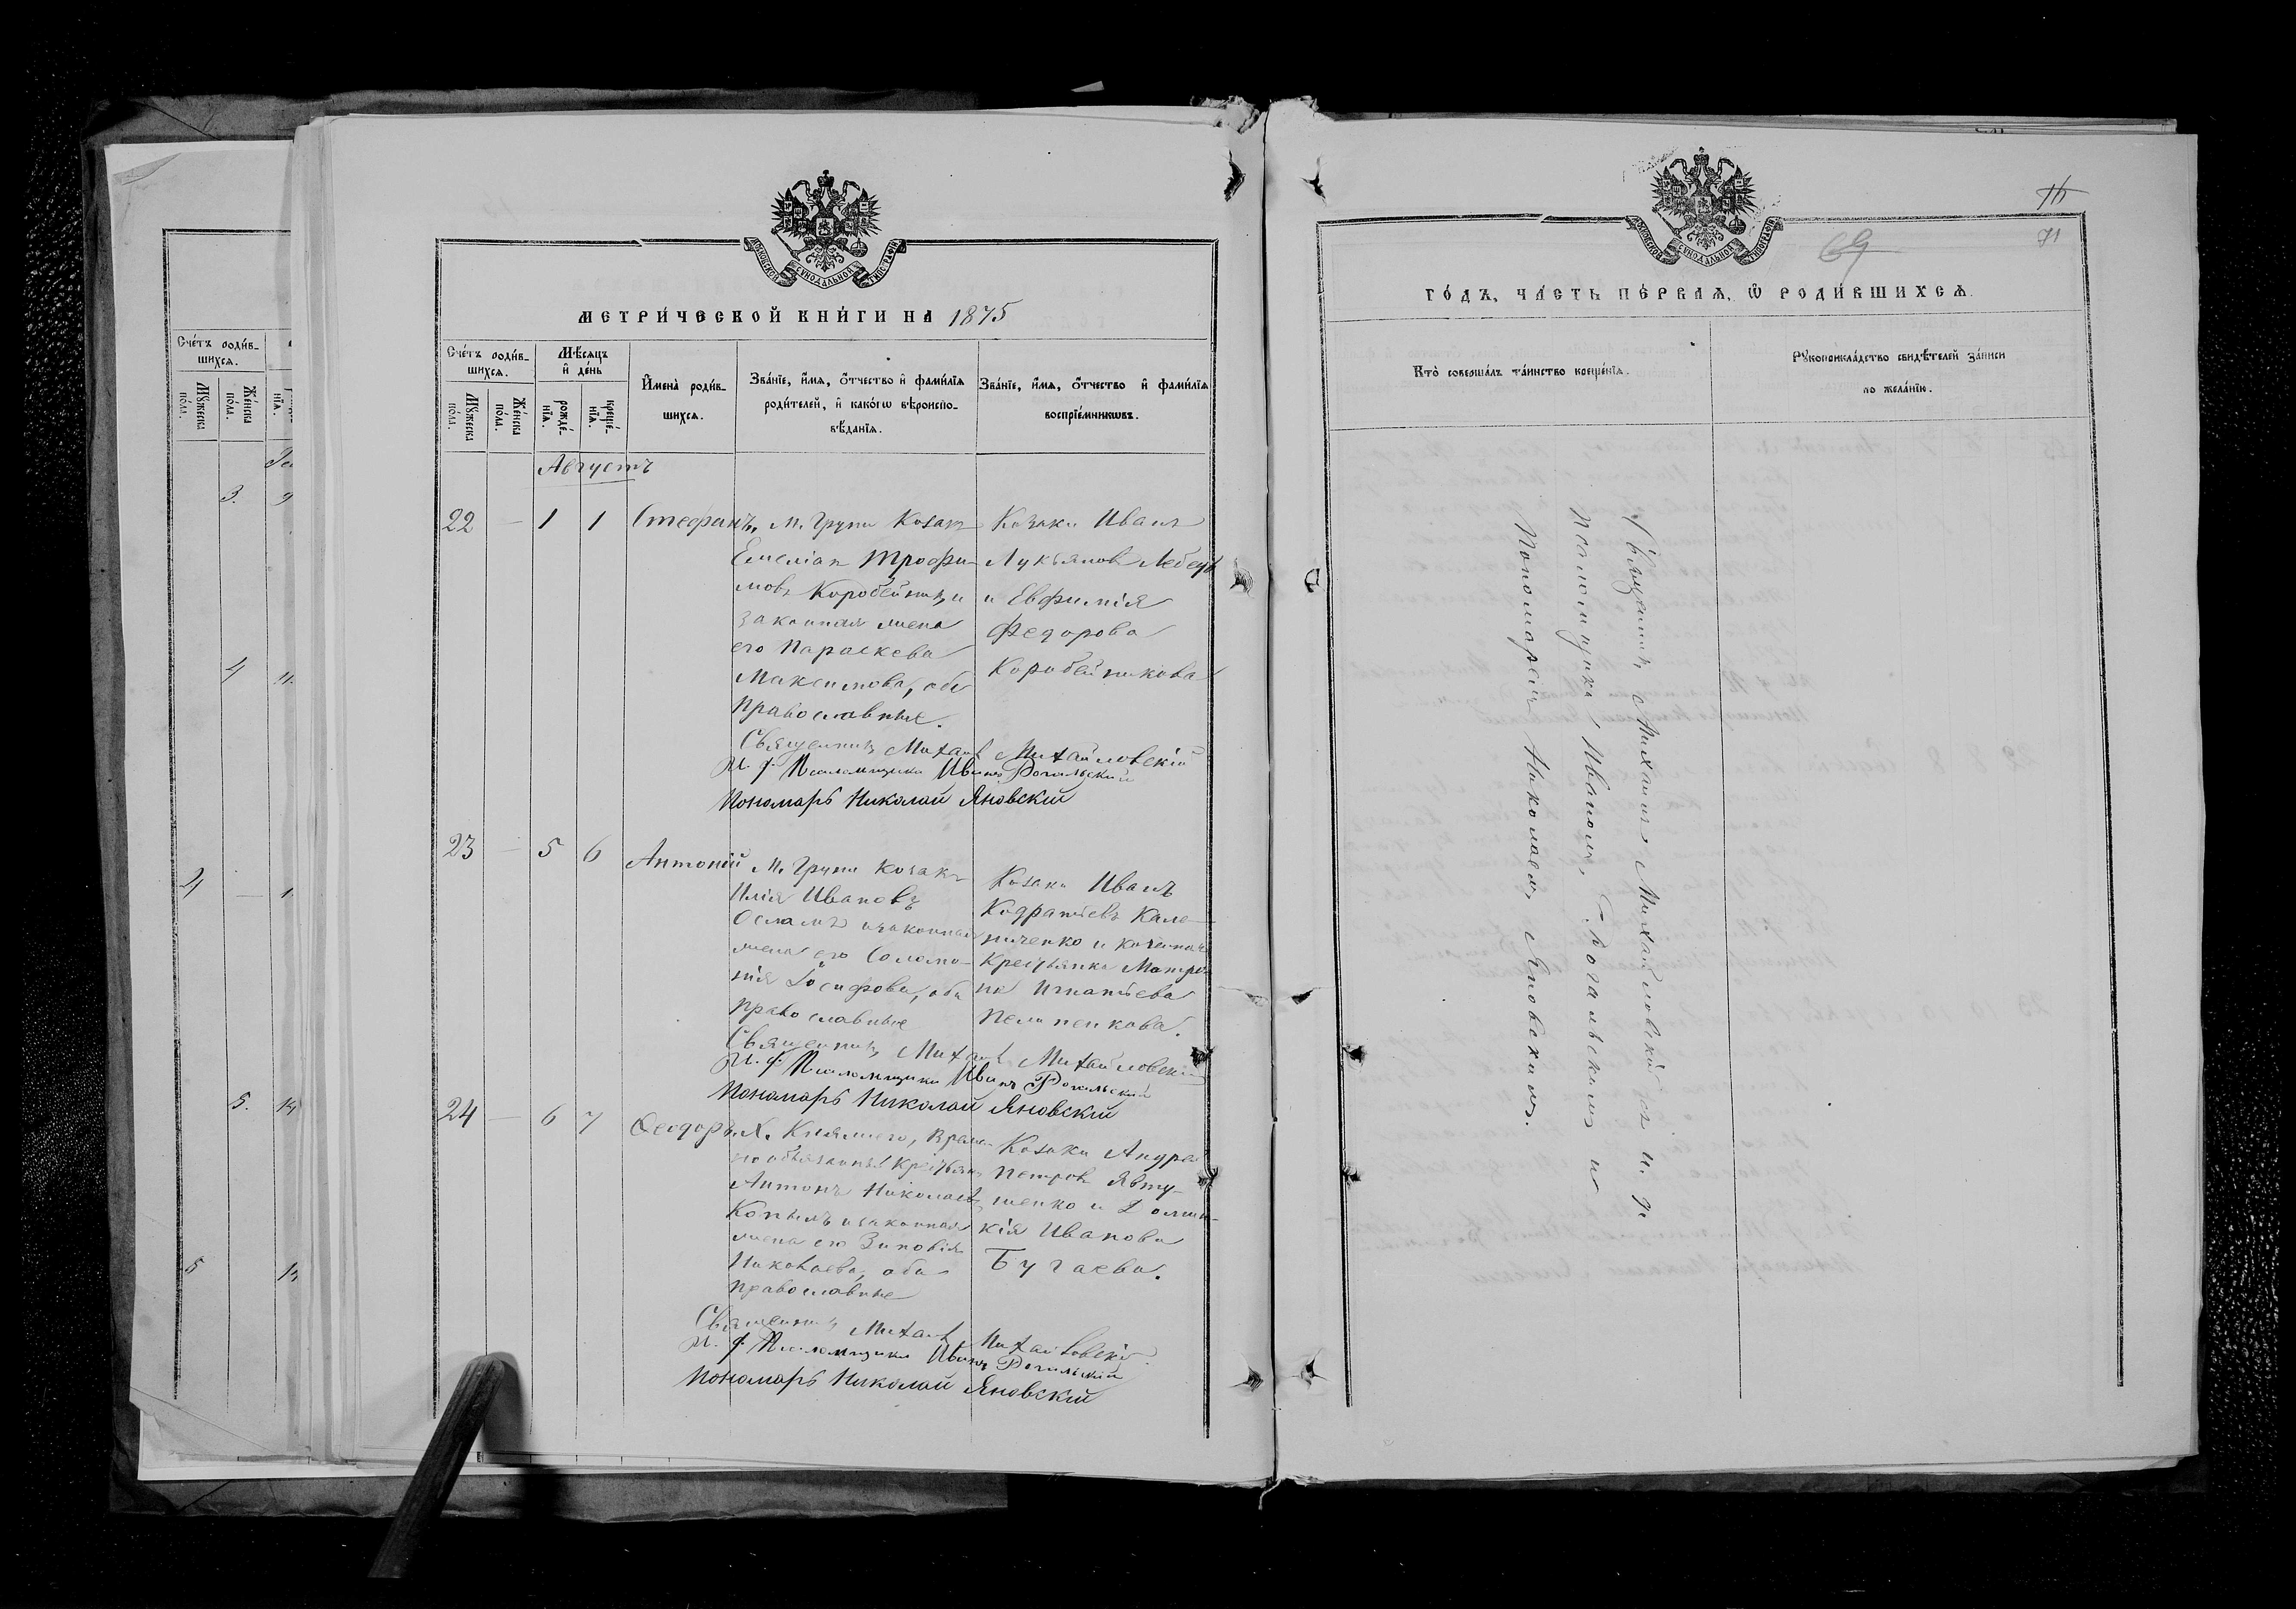 МОСКОВСКОЙ СѴНОДАЛЬНОЙ ТИПОГРАФІИ
МЕТРИ́ЧЕСКОЙ КНИ́ГИ НА 1875
Сче́тъ роди́в-
шихсѧ.
Мꙋ́жеска
по́ла.
Же́нска
по́ла.
Мѣ́сѧцъ
и҆ де́нь
рожде́-
нїѧ.
креще́-
нїѧ.
И҆мена̀ роди́в-
шихсѧ.
Зва́нїе, и҆́мѧ, ѻ҆́тчество и҆ фами́лїѧ
роди́телей, и҆ како́гѡ вѣроиспо-
вѣ́данїѧ.
Зва́нїе, и҆́мѧ, ѻ҆́тчество и҆ фами́лїѧ
воспрїе́мникѡвъ.
Августъ
22 — 1 1 Стефанъ,
м. Груни Козакъ
Емеліан Трофи-
мовъ Коробейникъ и
законная жена
его Параскева
Максимова, оба
православные.
Козаки Иванъ
Лукьянов Лебедь
и Евфимія
Федорова
Коробейникова
Священникъ Михаилъ Михайловскій
И. д. Псаломщика Иванъ Рогальский
Пономарь Николай Яновскій
23 — 5 6 Антоній
м. Груни Козакъ
Илія Ивановъ
Осламъ и законная
жена его Соломо-
нія Іосифова, оба
православные
Козаки Иванъ
Кодратьевъ Кале-
ниченко и
Крестьянка Матро-
на Игнатьева
Пелипенкова.
Священникъ Михаилъ Михайловскій
И. д. Псаломщика Иванъ Рогальский
Пономарь Николай Яновскій
24 — 6 7 Ѳеодоръ.
Х. Княжного, Времен-
нообязанный Крестьянинъ
Антонъ Николаевъ
Копылъ и законная
жена его Зиновія
Николаева, оба
православные
Козаки Андрей
Петров Явту-
шенко и Домни-
кія Иванова
Бугаева.
Священникъ Михаилъ Михайловскій
И. д. Псаломщика Иванъ Рогальский
Пономарь Николай Яновскій
МОСКОВСКОЙ СѴНОДАЛЬНОЙ ТИПОГРАФІИ
69
71
ГО́ДЪ, ЧА́СТЬ ПЕ́РВАѦ, Ѡ҆ РОДИ́ВШИХСѦ.
Кто̀ соверша́лъ та́инство креще́нїѧ.
Рꙋкоприкла́дство свидѣ́телей за́писи
по жела́нїю.
Священникъ Михаилъ Михайловскій съ и. д.
Псаломщика, Иваномъ Рогальскимъ и
Пономаремъ Николаемъ Яновскимъ.
Сче́тъ роди́в-
шихсѧ.
Мꙋ́жеска
по́ла.
Же́нска
по́ла.
3.
4
4
5.
5